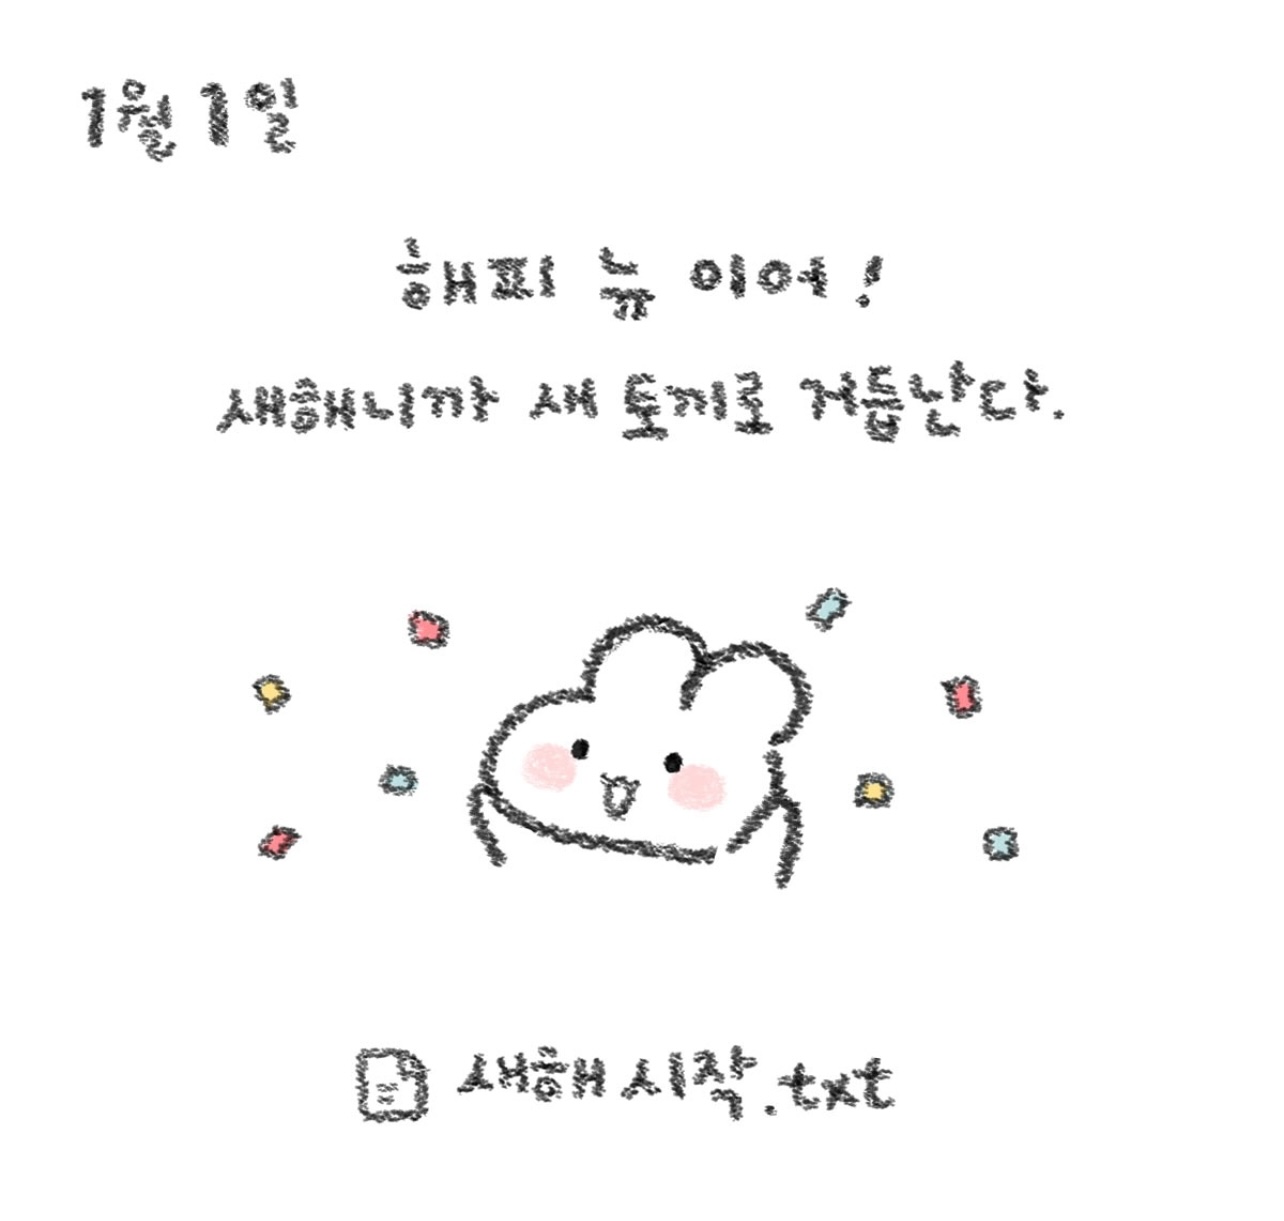 1월 1일
해피 뉴 이어!
새해니까 새 토끼로 거듭난다.
새해 시작.txt